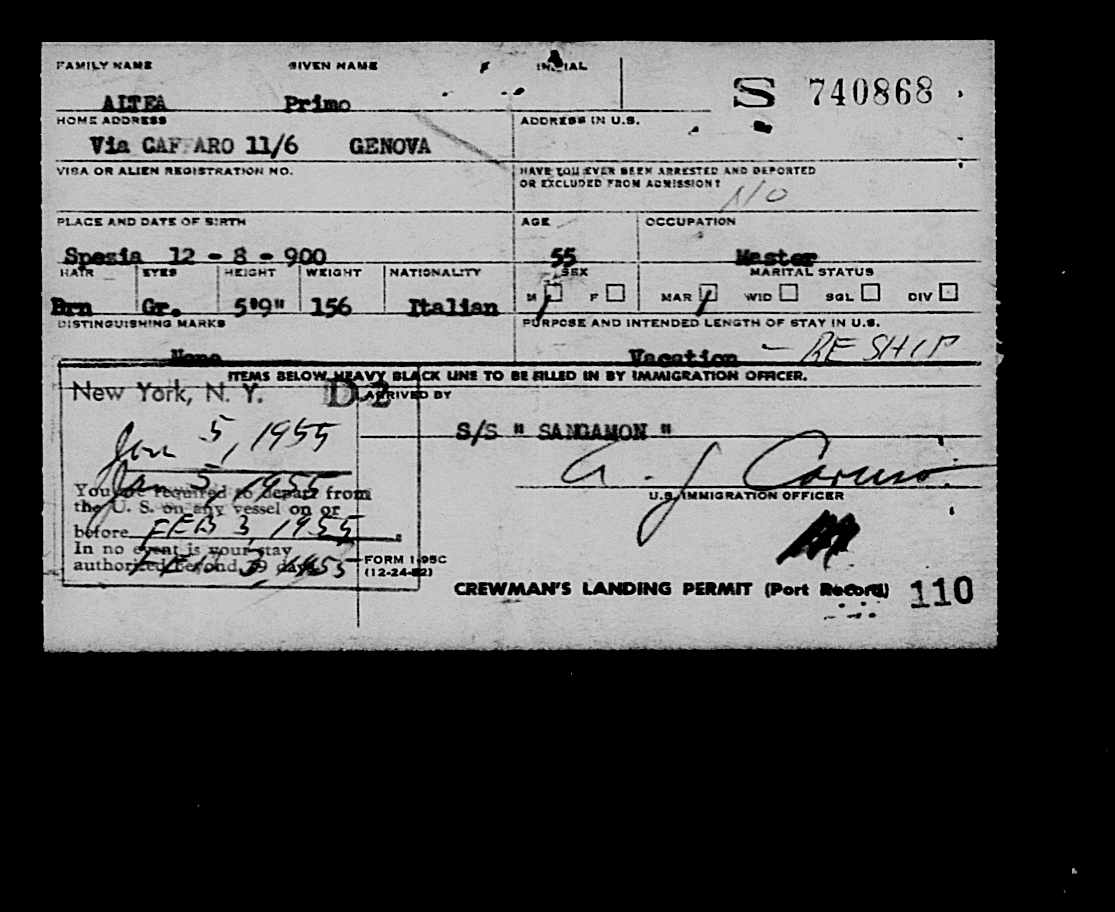 FAMILY NAME GIVEN NAME INITIAL
S 740868
ALTEA Primo
HOME ADDRESS ADDRESS IN U.S.
Via CAFFARO 11/6 GENOVA
VISA OR ALIEN REGISTRATION NO. HAVE YOU EVER BEEN ARRESTED AND DEPORTED
OR EXCLUDED FROM ADMISSION?
NO
PLACE AND DATE OF BIRTH AGE OCCUPATION
Spezia 12 - 8 - 900 55 Master
HAIR EYES HEIGHT WEIGHT NATIONALITY SEX MARITAL STATUS
M F MAR WID SGL DIV
Brn Gr. 5'9" 156 Italian
DISTINGUISHING MARKS PURPOSE AND INTENDED LENGTH OF STAY IN U.S.
None Vacation - RESHIP
ITEMS BELOW HEAVY BLACK LINE TO BE FILLED IN BY IMMIGRATION OFFICER.
New York, N. Y. D-2 ARRIVED BY
Jan 5, 1955 S/S " SANGAMON "
Jan 5, 1955
A. J. Caruso
You are required to depart from
U.S. IMMIGRATION OFFICER
the U. S. on any vessel on or
before FEB 3, 1955
In no event is your stay
authorized beyond 29 days
FEB 3, 1955
FORM I-95C
(12-24-52)
CREWMAN'S LANDING PERMIT (Port Record) 110